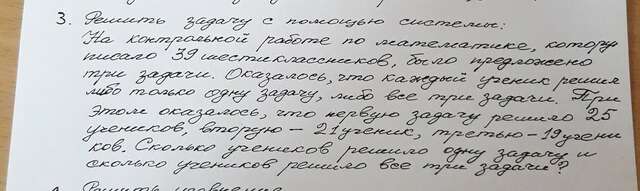 3. Решить задачу с помощью системы:
На контрольной работе по математике, котору
писало 39 шестиклассников, было предложено
три задачи. Оказалось, что каждый ученик решил
либо только одну задачу, либо все три задачи. При
этом оказалось, что первую задачу решило 25
учеников, вторую – 21 ученик, третью – 19 учени
ков. Сколько учеников решило одну задачу и
сколько учеников решило все три задачи?
Решить уравнение